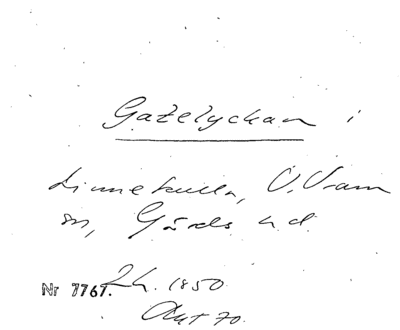 Gaželyckan i
Linnekulla, V. Vram
sn, Gärds hd
Nr 7767. Lh. 1850
Akt 70.